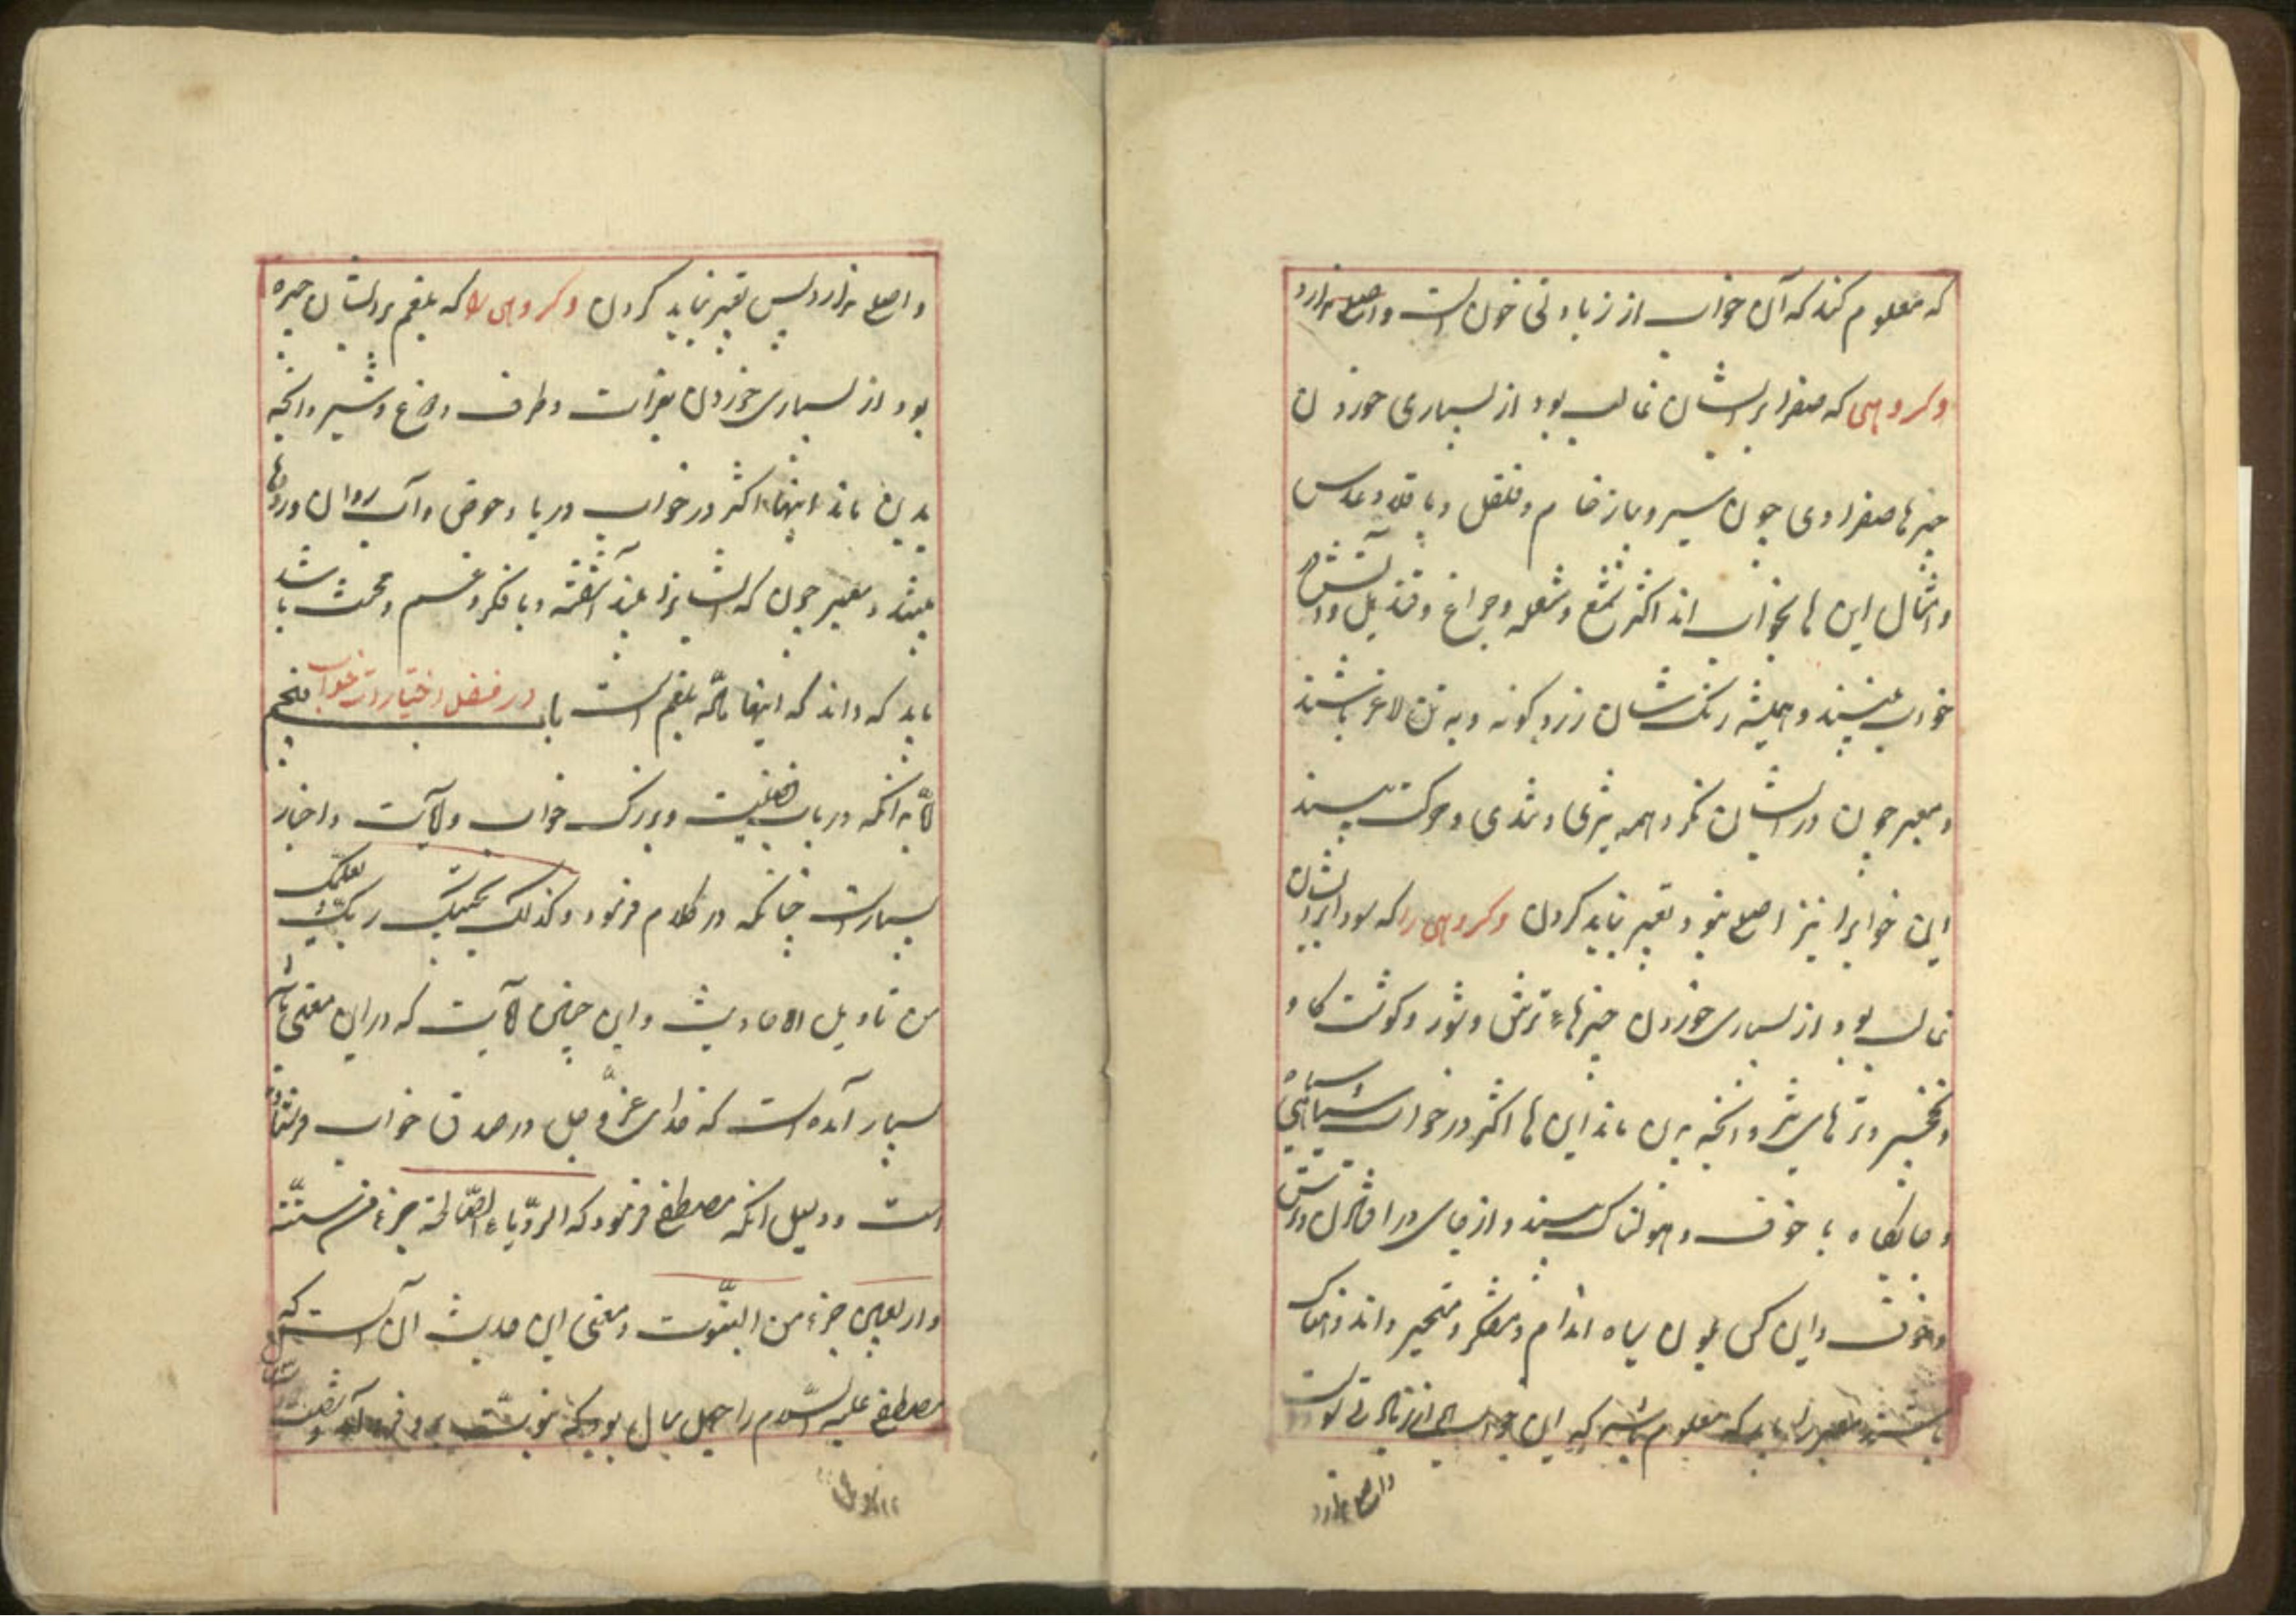 که معلوم کند که آن خواب از زیادتی خون است و اصلی ندارد
و کروهی که صفرا بر ایشان غالب بود از بسیاری خوردن
چیزها صفراوی چون سیر و پیاز خام و فلفل و باقلا و عدس
و امثال این ها بخواب اند اکثر شمع و شعله و چراغ و قندیل و آتش در
خواب بینند و همیشه رنک شان زرد کونه و به تن لاغر باشند
و معبر چون در ایشان نکرد همه تیزی و تندی و حرکت بیند
این خوابرا نیز اصلی نبود تعبیر نباید کردن و کروهی را که سودا بر ایشان
غالب بود از بسیاری خوردن چیزهاء ترش و شور و کوشت کاو
و نخجیر و تره های تیز و انچه بدین ماند این ها اکثر در خواب سیاهی
و جایکاه با خوف و هولناک بینند و از جای در افتادن و ترس
و خوف و این کس چون سیاه اندام و متفکر و متحیر و اندوهناک
باشند معبر را باید که معلوم باشد که این خواب از زیادتی سودا است
و اصلی ندارد
و اصلی ندارد پس تعبیر نباید کردن و کروهی را که بلغم بر ایشان چیره
بود از بسیاری خوردن بقرات و طرف و دوغ و شیر و انچه
بدین ماند اینها اکثر در خواب دریا و حوض و آب روان و رودها
بینند و معبر چون که ایشانرا بیند آشفته و با فکر و غم و محنت باشد
باید که داند که اینها ماده بلغم است باب پنجم در فصل اختیارات خواب
لا بدانکه در باب فضلیت و بزرک خواب دلایت و اخبار
بسیار است چنانکه در کلام فرمود و کذلک یجتبیک ربک و یعلمک
من تاویل الاحادیث و این چنین لایت که در این معنی ها
بسیار آمده است که خدای عز و جل در صدق خواب فرستاده
است و دلیل انکه مصطفی فرمود که الرؤیاء الصالحة جزء من ستة
و اربعین جزء من النبوت و معنی این حدیث آن است که
مصطفی علیه السلام را چهل سال بود که نبوت